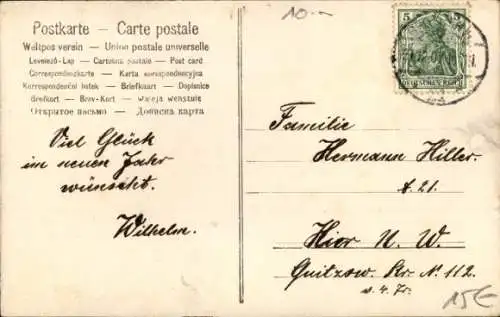 Postkarte – Carte postale
Weltpost verein – Union postale universelle
Levelező-Lap – Cartolina postale – Post card
Correspondenzkarte – Karta korespondencyjna
Korespondenční lístek – Briefkaart – Dopisnice
Brefkort – Brev-Kort –
Открытое письмо – Дописна карта
10.–
5
DEUTSCHES REICH
Viel Glück
im neuen Jahr
wünscht.
Wilhelm.
Familie
Hermann Hiller.
Hier N. W.
Quitzow. Str. N. 112.
v. 4. Tr.
15€